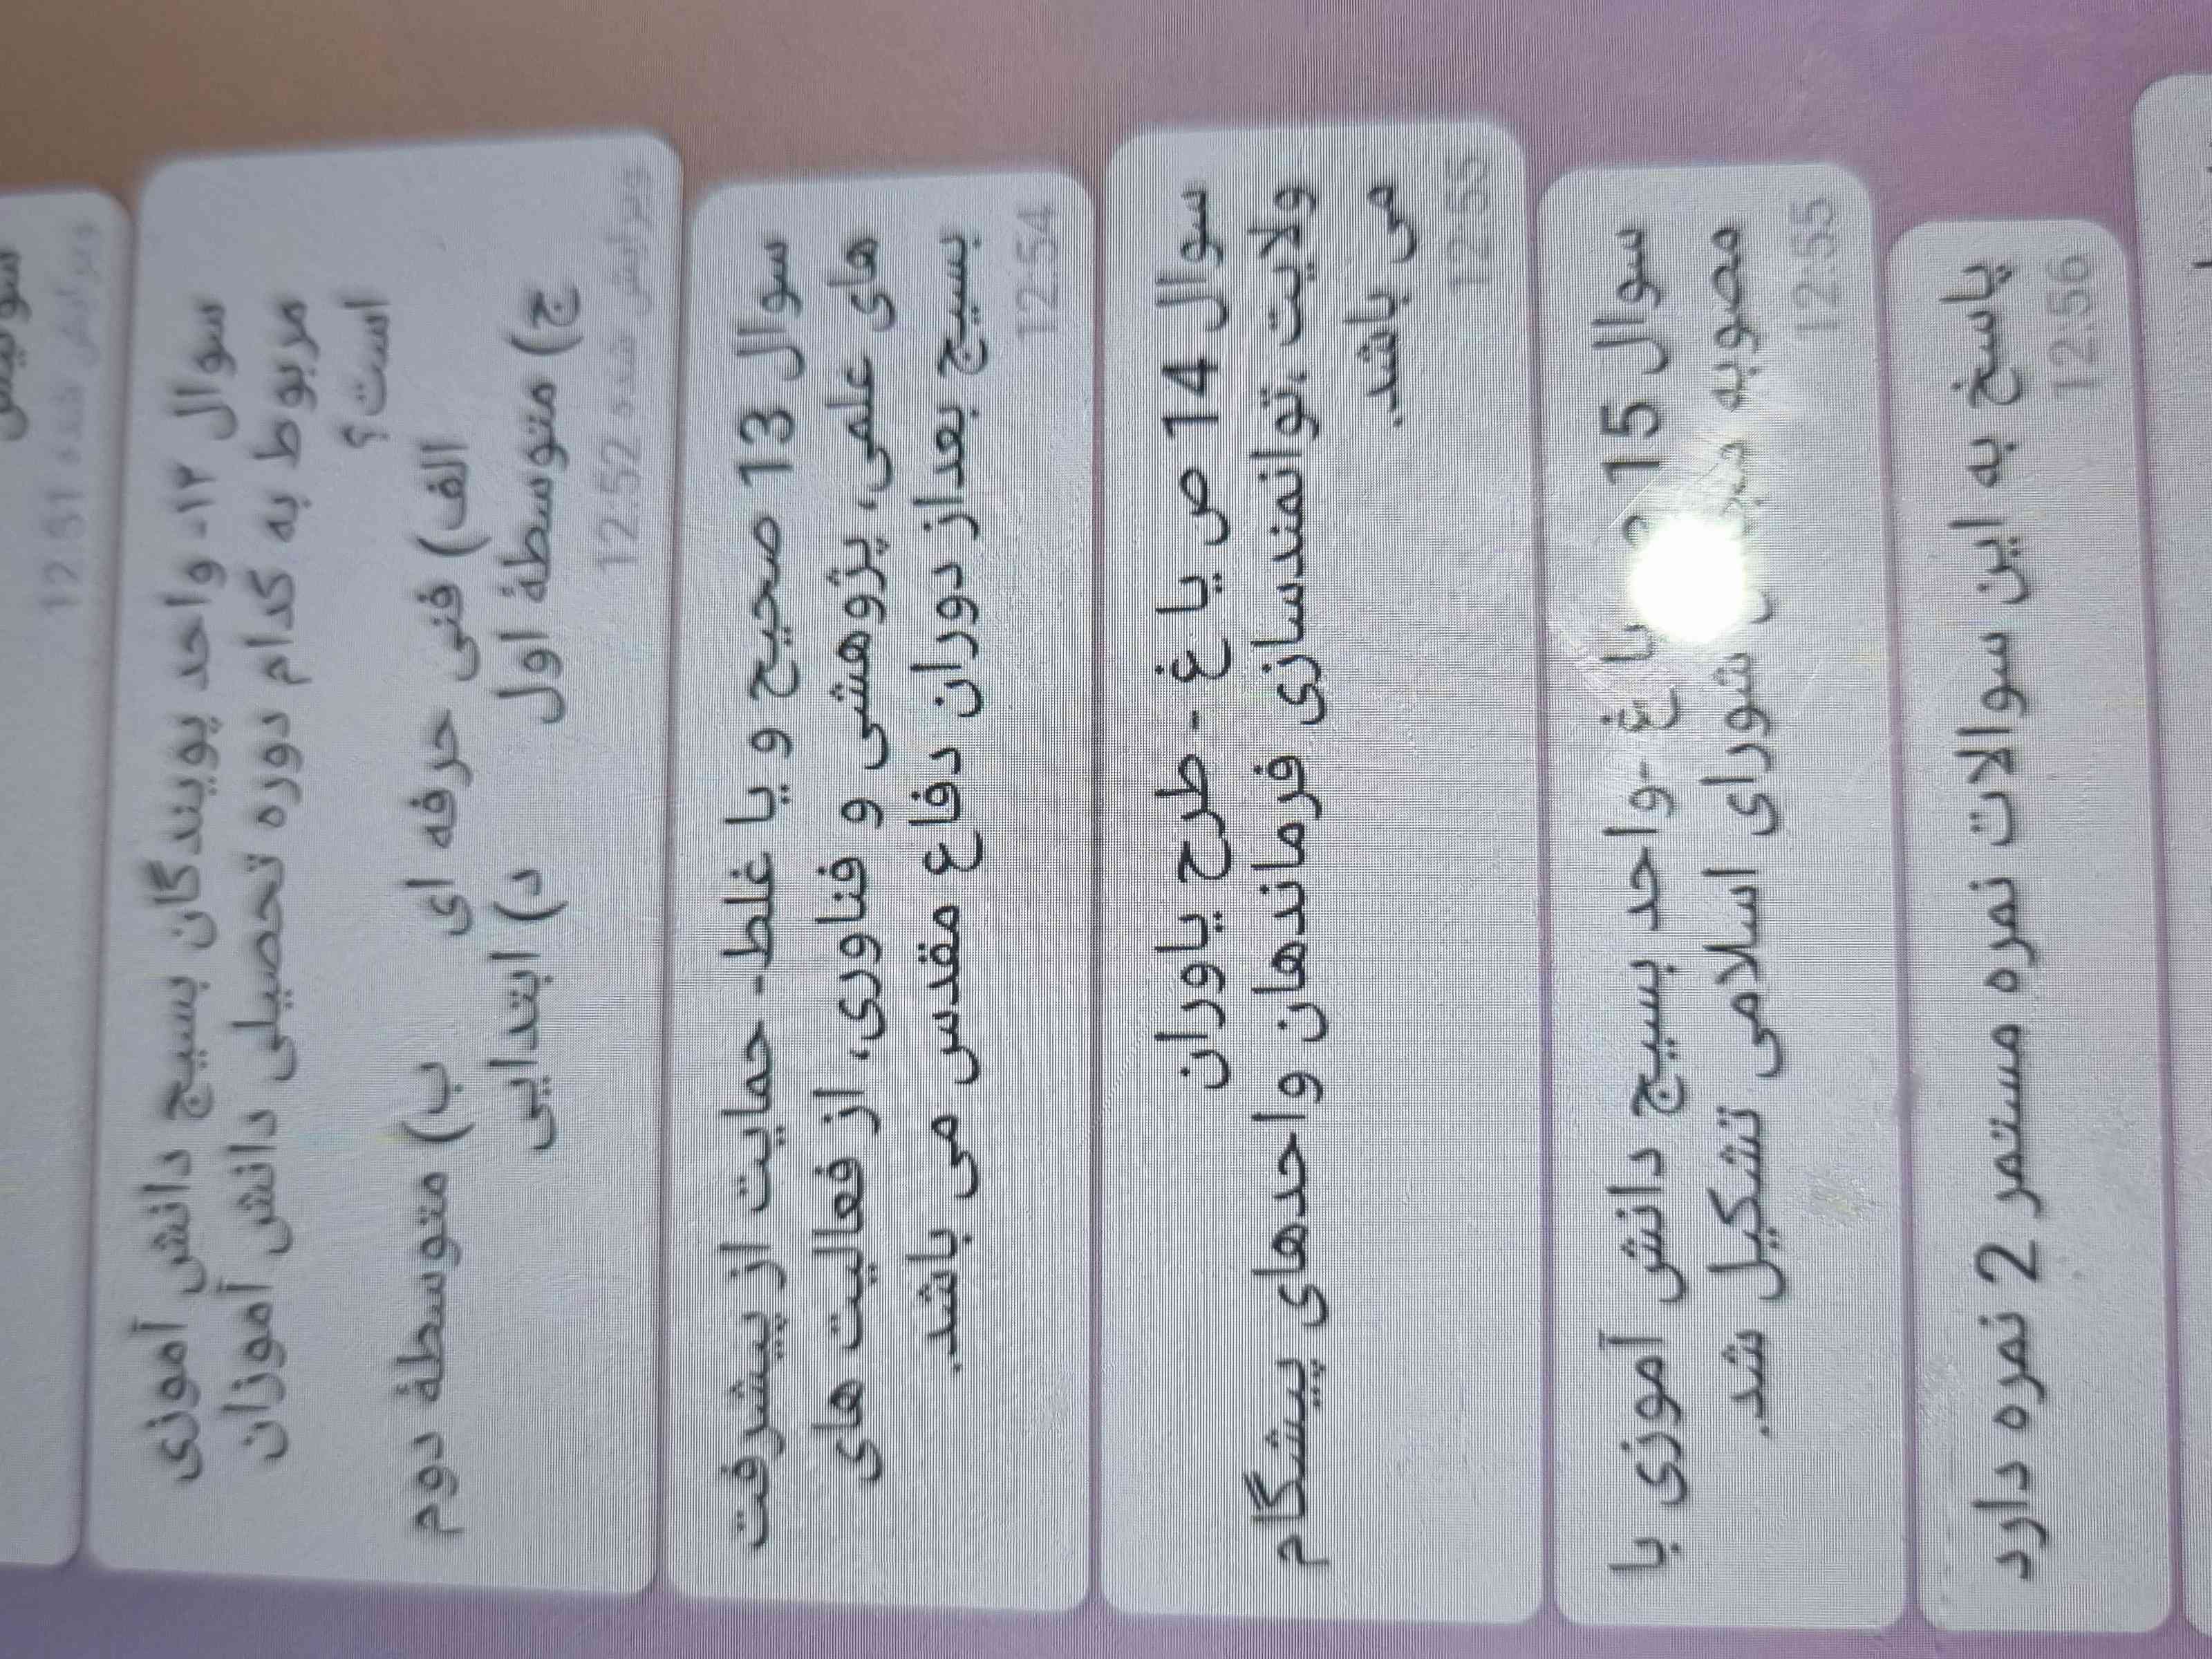 12:51 ویرایش شده
سوال ۱۲- واحد پویندگان بسیج دانش آموزی
مربوط به کدام دوره تحصیلی دانش آموزان
است؟
الف) فنی حرفه ای ب) متوسطهٔ دوم
ج) متوسطهٔ اول د) ابتدایی
12:52 ویرایش شده
سوال 13 صحیح و یا غلط- حمایت از پیشرفت
های علمی، پژوهشی و فناوری، از فعالیت های
بسیج بعداز دوران دفاع مقدس می باشد.
12:54
سوال 14 ص یا غ - طرح یاوران
ولایت ،توانمندسازی فرماندهان واحدهای پیشگام
می باشد.
12:55
سوال 15 یا غ -واحد بسیج دانش آموزی با
مصوبه شورای اسلامی تشکیل شد.
12:55
پاسخ به این سوالات نمره مستمر 2 نمره دارد
12:56